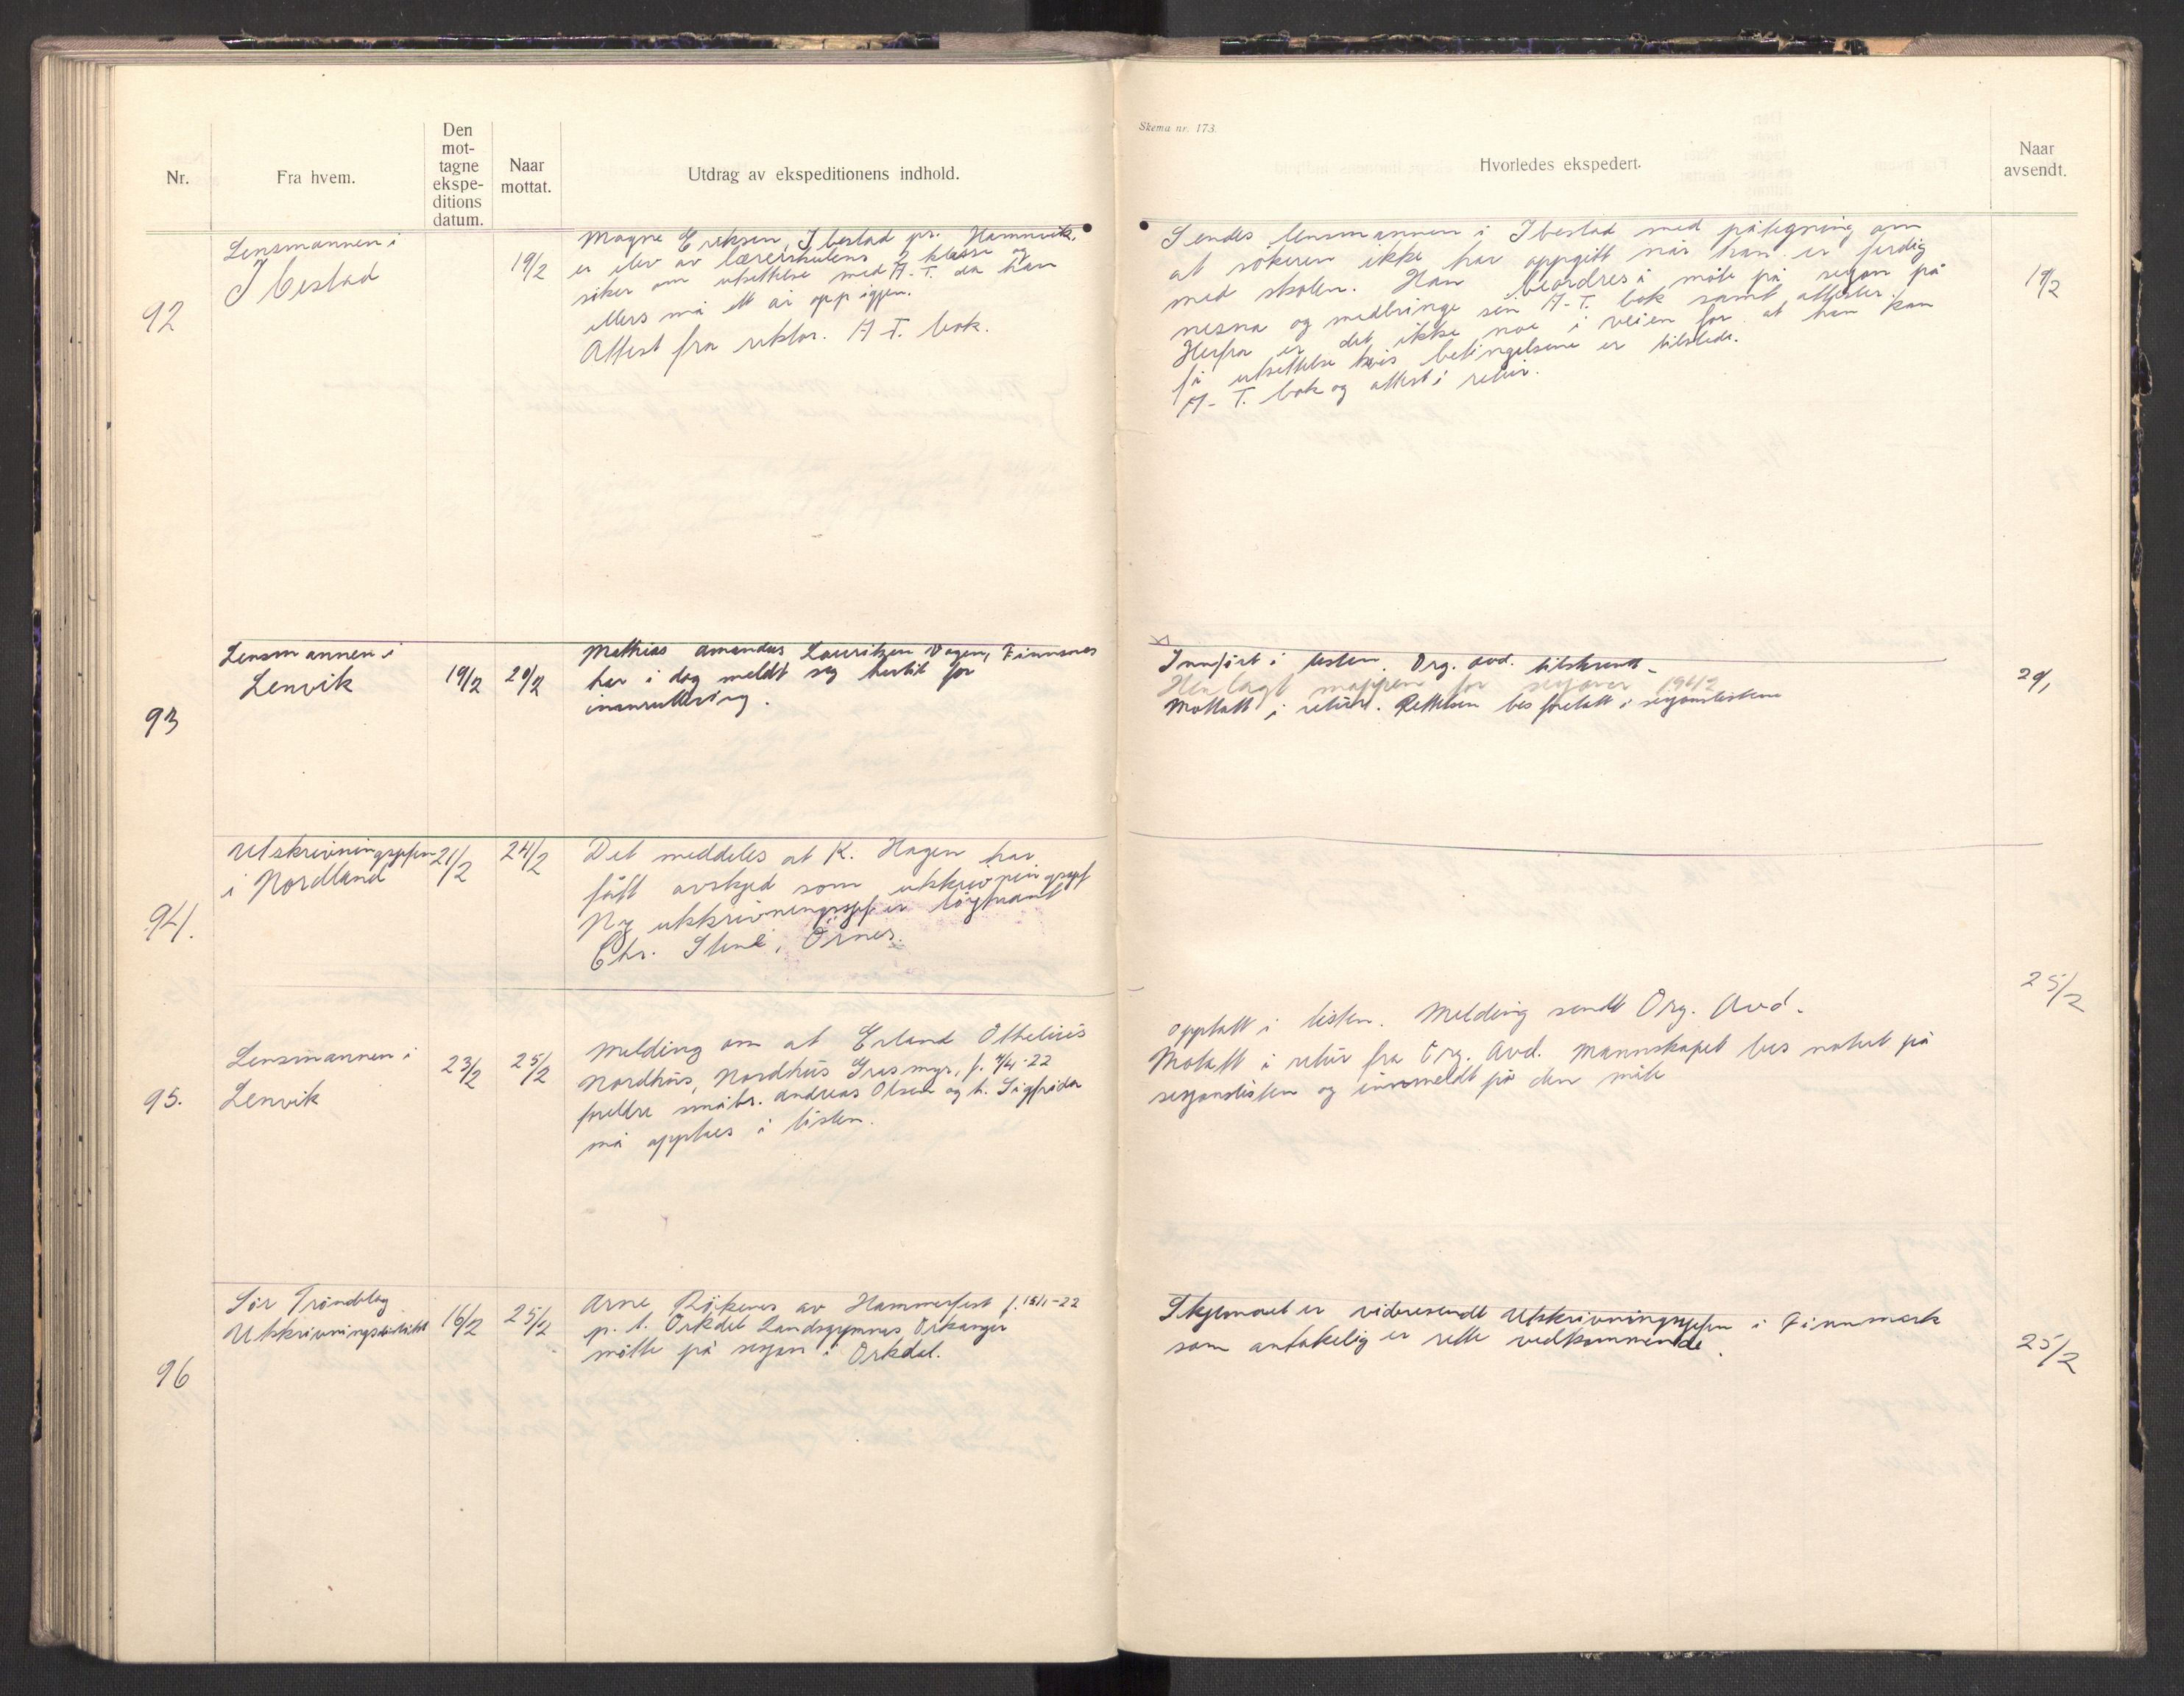 Skema nr. 173.
Nr.
Fra hvem.
Den
mot-
tagne
ekspe-
ditions
datum.
Naar
mottat.
Utdrag av ekspeditionens indhold.
Hvorledes ekspedert.
Naar
avsendt.
92
Lensmannen i
Ibestad
19/2
Magne Eriksen, Ibestad pr. Hamnvik,
er elev av lærerskulens 2 klasse og
söker om utsettelse med A-T. da han
ellers må ett år opp igjen.
Attest fra rektor. A-T. bok.
Sendes lensmannen i Ibestad med påtegning om
at sökeren ikke har oppgitt når han er ferdig
med skolen. Han beordres å möte på sesjon på
nesna og medbringe sin A-T. bok samt attester.
Herfra er det ikke noe i veien for at han kan
få utsettelse hvis betingelsene er tilstede.
A-T. bok og attest i retur.
19/2
93
Lensmannen i
Lenvik
19/2
20/2
Mathias Amandus Lauritzen Vagen, Finnsnes
har i dag meldt seg hertil for
innrullering.
Innfört i listen. Org. avd. tilskrevet
Henlagt mappen for sesjoner 1942
Mottatt i retur. Rettelsen bes foretatt i sesjonslistene
94.
Utskrivningssjefen
i Nordland
21/2
24/2
Det meddeles at K. Hagen har
fått avskjed som utskrivningssjef
Ny utskrivningssjef er löytnant
Chr. Stene, Örnes.
95.
Lensmannen i
Lenvik
23/2
25/2
Melding om at Erland Othelius
Nordhus, Nordhus Gresmyr, f. 4/4-22
foreldre småbr. Andreas Olsen og h. Sigfrida
må opptas i listen.
opptatt i listen. Melding sendt Org. Avd.
Motatt i retur fra Org. Avd. Mannskapet bes notert på
sesjonslisten og innmeldt på den måte
25/2
96
Sör Tröndelag
Utskrivningsdistrikt
16/2
25/2
Arne Rökenes av Hammerfest f. 15/1-22
p. t. Orkdal Landsgymnas, Orkanger
mötte på sesjon i Orkdal.
Skjemaet er videresendt Utskrivningssjefen i Finnmark
som antakelig er rette vedkommende.
25/2